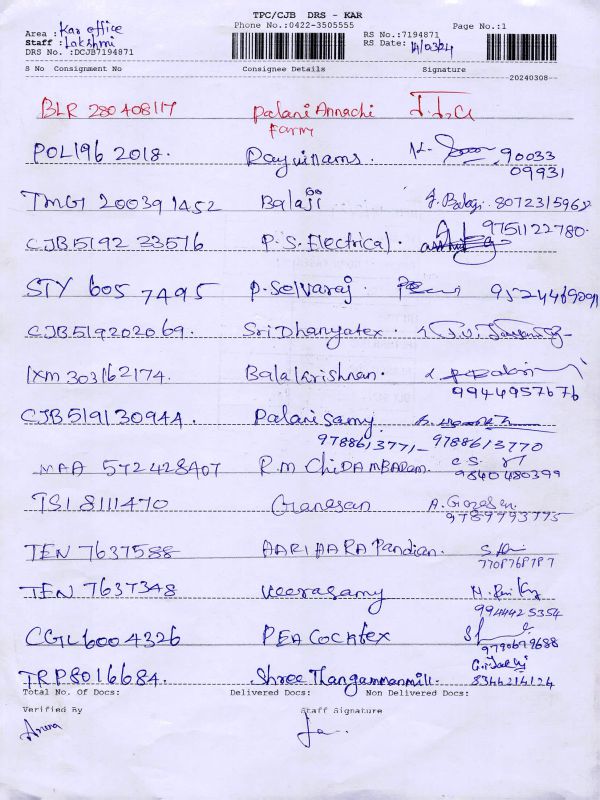 TPC/CJB DRS - KAR
Phone No.:0422-3505555
Page No.:1
Area : Kar office
RS No.:7194871
Staff : Lakshmi
RS Date: 14/03/24
DRS No. :DCJB7194871
S No Consignment No Consignee Details Signature
20240308
BLR 280408117 Palani Annachi
Farm
POL196 2018. 90033
09931
TMG1 200391452 Balaji J. Balaji 8072315962
CJB5192 23576 P.S. Electrical. 9751122780.
STY 605 7495 P. Selvaraj.
CJB519202069. Sri Dhanyatex.
IXM 303162174. Balakrishnan.
9944957676
CJB519130944. Palanisamy
9788613771 - 9788613770
MAA 572428407 R.M CHIDAMBARAM.
9840480399
TSI 8111470 Ganesan A. Ganesan.
9789793775
TEN 7637588 AARI AARA Pandian.
TEN 7637348 Veerasamy
9944425354
CGL6004326 PEACOCKtex
9790679688
TRP8016684. Shree Thangammanmill. 8344214124
Total No. Of Docs: Delivered Docs: Non Delivered Docs:
Verified By Staff Signature